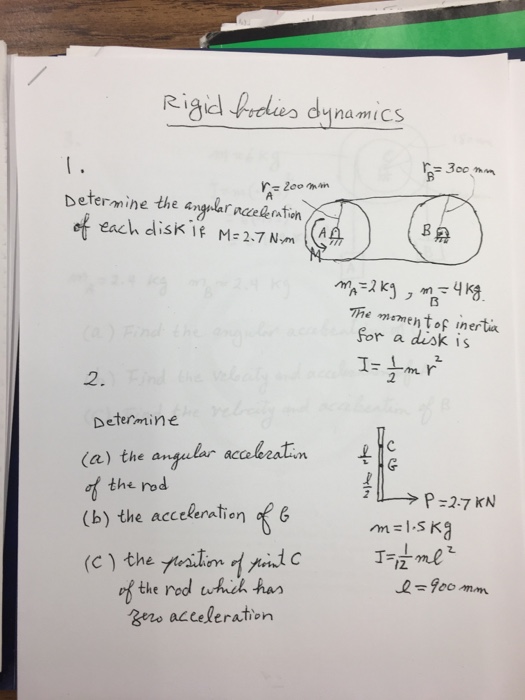 Rigid bodies dynamics
1.
r_A = 200 mm
r_B = 300 mm
Determine the angular acceleration
of each disk if M = 2.7 N.m
A
B
M
m_A = 2 kg, m_B = 4 kg.
The moment of inertia
for a disk is
I = 1/2 m r^2
2.
Determine
(a) the angular acceleration
of the rod
(b) the acceleration of G
(c) the position of point C
of the rod which has
zero acceleration
l/2
C
G
l/2
P = 2.7 KN
m = 1.5 Kg
I = 1/12 ml^2
l = 900 mm